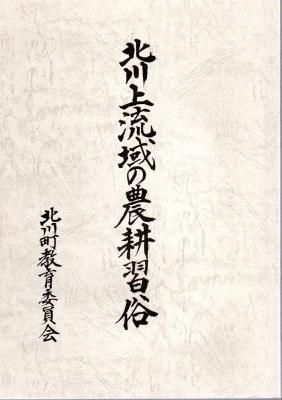 北川上流域の農耕習俗
北川町教育委員会